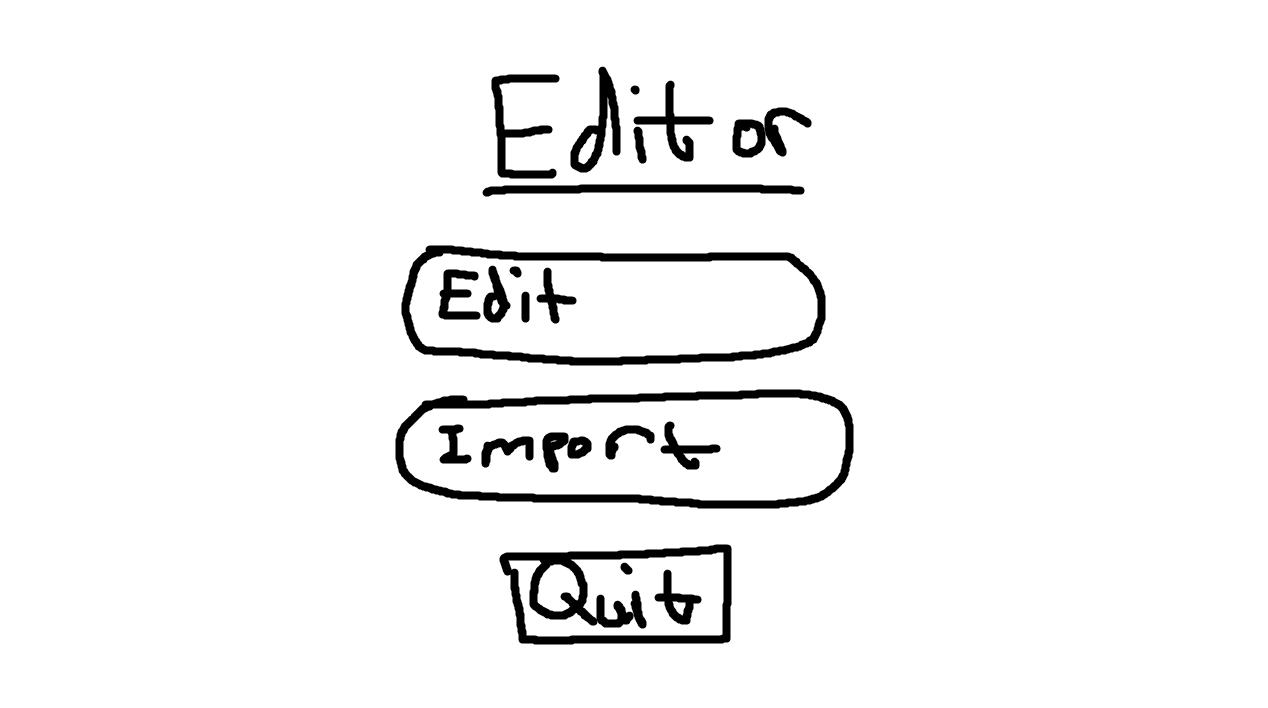 Editor
Edit
Import
Quit